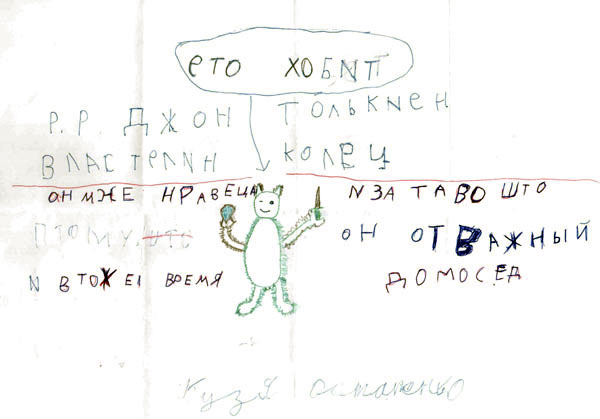 ето ХОБИП
Р.Р. ДЖОН ТОЛЬКИЕН
ВЛАСТЕЛИН КОЛЕЦ
ОН МЖЕ НРАВЕЦА ИЗА ТАВО ШТО
ПТОМУ ШТО ОН ОТВАЖНЫЙ
И ВТОЖЕ ВРЕМЯ ДОМОСЕД
Кузя